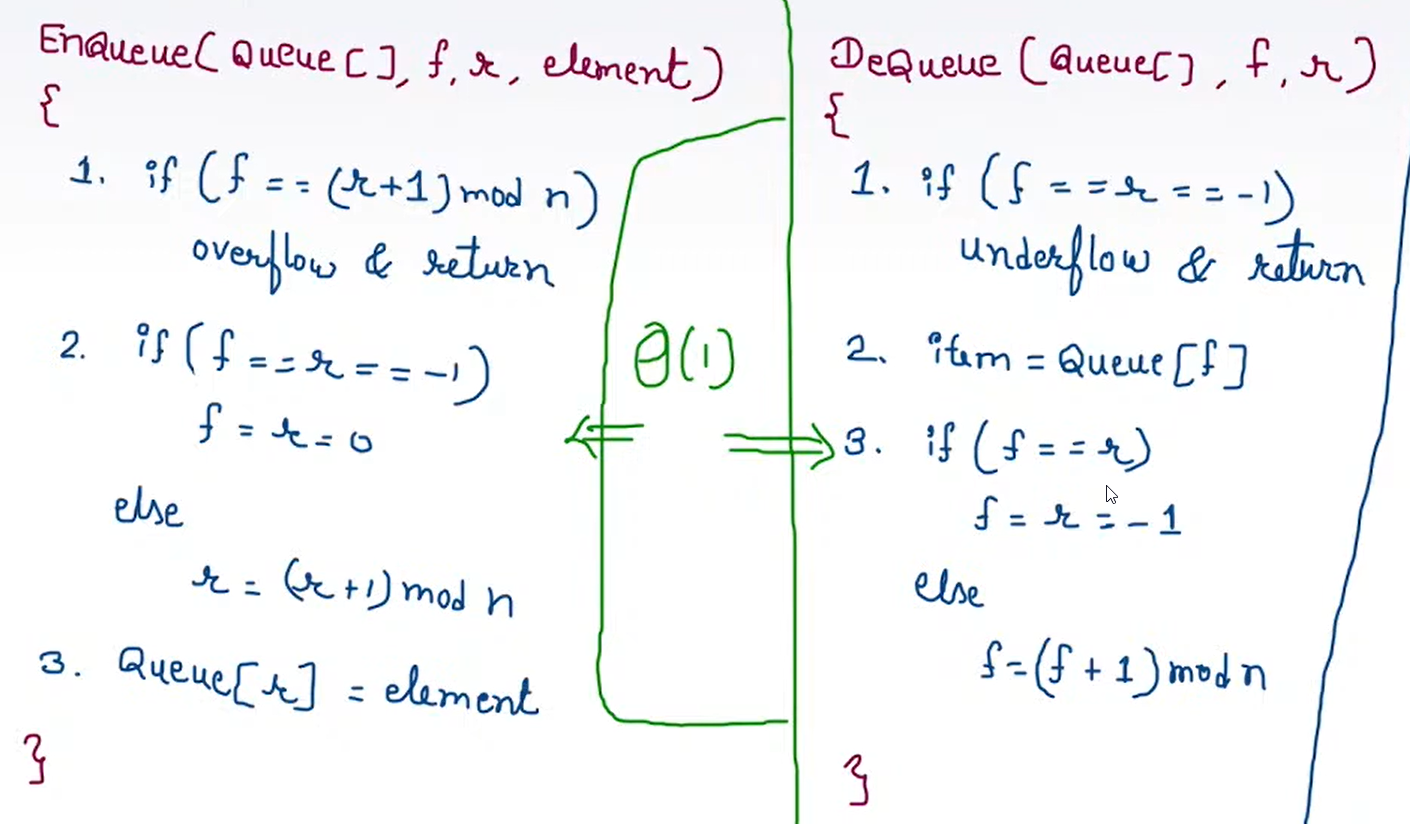 EnQueue(Queue[], f, r, element)
{
1. if (f == (r+1) mod n)
overflow & return
2. if (f == r == -1)
f = r = 0
else
r = (r+1) mod n
3. Queue[r] = element
}
θ(1)
DeQueue (Queue[], f, r)
{
1. if (f == r == -1)
underflow & return
2. item = Queue[f]
3. if (f == r)
f = r = -1
else
f = (f + 1) mod n
}